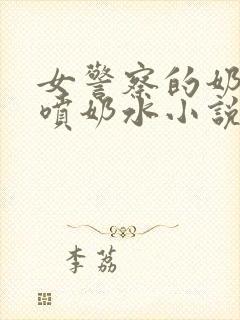 女警察的奶
噴奶水小説
李荔